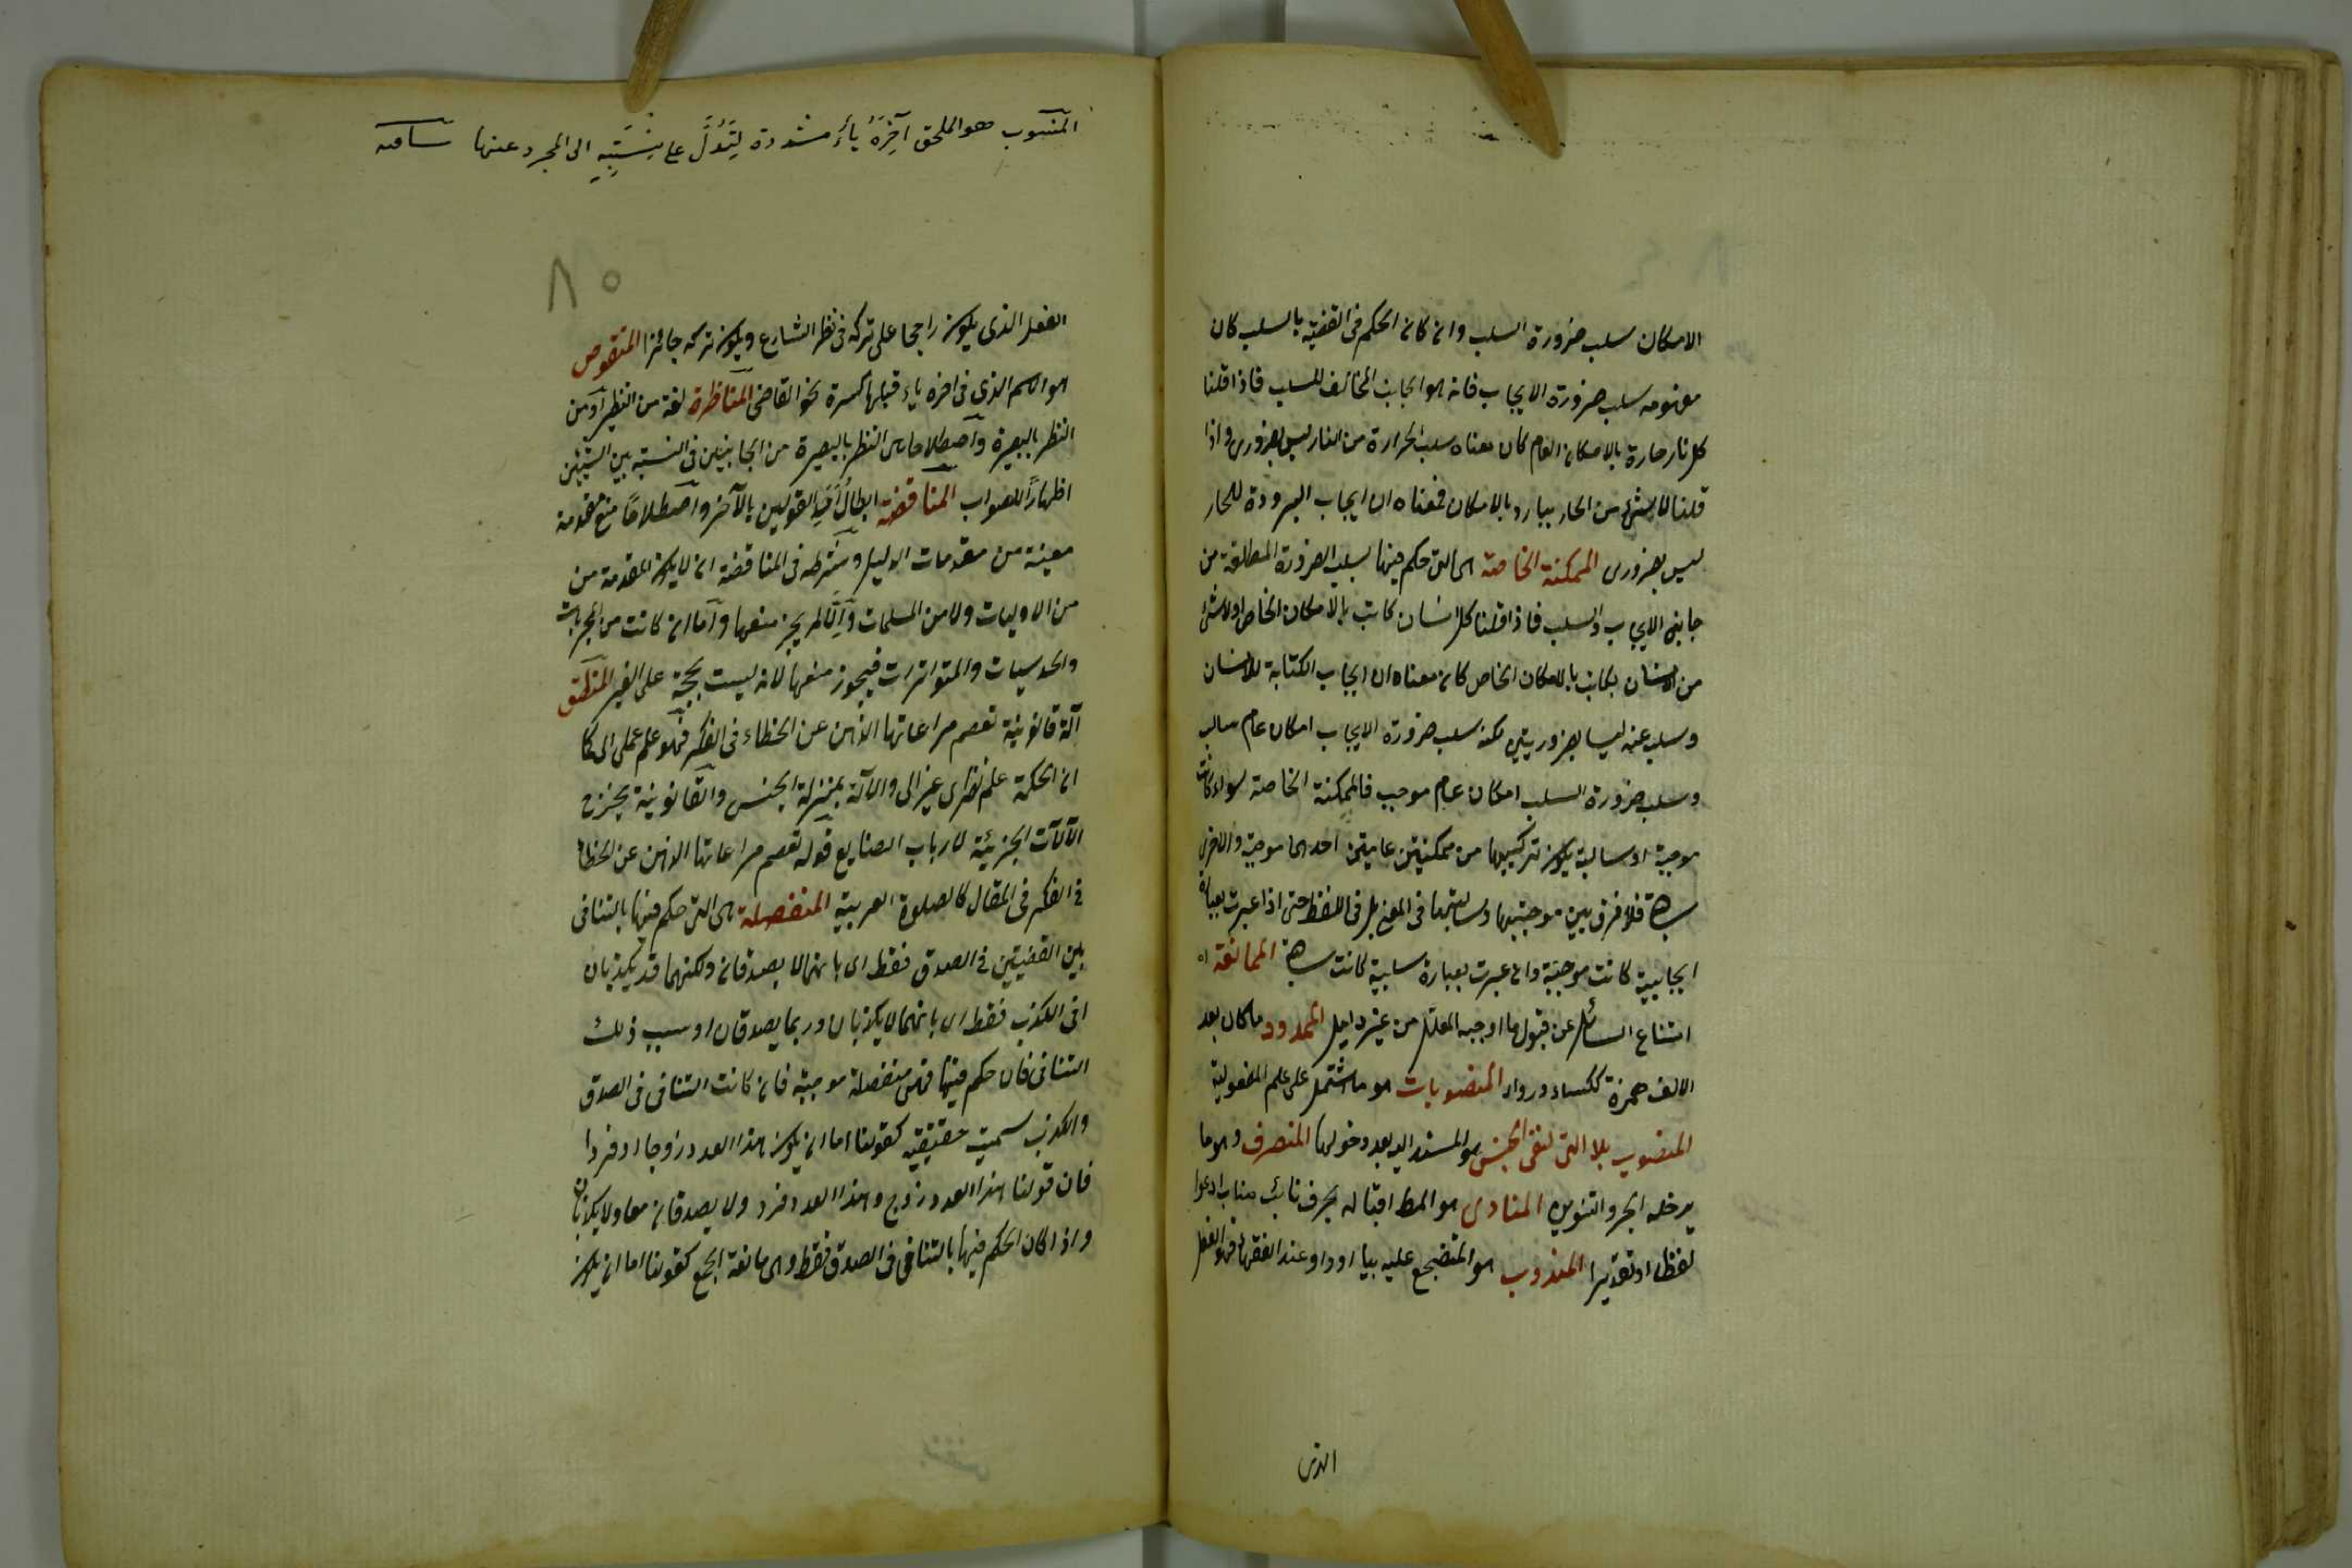 الامكان سلب ضرورة السلب وان كان الحكم فى القضية بالسلب كان
مفهومه سلب ضرورة الايجاب فانه هو الجانب المخالف للسلب فاذا قلنا
كل نار حارة بالامكان العام كان معناه سلب الحرارة من النار ليس بضرورى واذا
قلنا لا شئ من الحار ببارد بالامكان فمعناه ان ايجاب البرودة للحار
ليس بضرورى الممكنة الخاصة هى التى حكم فيها بسلب الضرورة المطلقة من
جانبى الايجاب والسلب فاذا قلنا كل انسان كاتب بالامكان الخاص اولا شئ
من الانسان بكاتب بالامكان الخاص كان معناه ان ايجاب الكتابة للانسان
وسلبه عنه ليسا بضروريتين لكنه سلب ضرورة الايجاب امكان عام سالب
وسلب ضرورة السلب امكان عام موجب فالممكنة الخاصة سواء كانت
موجبة او سالبة يكون تركيبها من ممكنيتن عامتين احديهما موجبة والاخرى
سالبة فلا فرق بين موجبتيها وسالبتها فى المعنى بل فى اللفظ حتى اذا عبرت بعبارة
ايجابية كانت موجبة وان عبرت بعبارة سلبية كانت سالبة الممانعة
امتناع السائل عن قبول ما اوجبه المعلل من غير دليل الممدود ما كان بعد
الالف همزة ككساء ورداء المنصوبات هو ما اشتمل على علم المفعولية
المنصوب بلا التى لنفى الجنس هو المسند اليه بعد دخولها المنصرف وهو ما
يدخله الجر والتنوين المنادى هو المط اقباله بحرف نائب مناب ادعوا
لفظا او تقديرا المندوب هو المتفجع عليه بيا او وا وعند الفقهاء هو الفعل
الذى
المنسوب هو الملحق آخِرَهُ ياءٌ مشددة لِتَدُلَّ على نِسْبَتِهِ الى المجرد عنها
٨٥
الفعل الذى يكون راجحا على تركه فى نظر الشارع ويكون تركه جائزا المنقوص
هو الاسم الذى فى اخره ياء قبلها كسرة نحو القاضى المناظرة لغة من النظير او من
النظر بالبصيرة واصطلاحا هى النظر بالبصيرة من الجانبين فى النسبة بين الشيئين
اظهارًا للصواب المناقضة ابطال احد القولين بالآخر واصطلاحًا منع مقدمة
معينة من مقدمات الدليل وشرطه فى المناقضة ان لا يكون المقدمة من
من الاوليات ولا من المسلمات وَاِلَّا لم يجز منعها واما ان كانت من المجربات
والحدسيات والمتواترات فيجوز منعها لانه ليست بحجة على الغير المنطق
آلة قانونية تعصم مراعاتها الذهن عن الخطاء فى الفكر فهو علم عملى الى كما
ان الحكمة علم نظرى غير الى والالة بمنزلة الجنس والقانونية يخرج
الآلات الجزئية لارباب الصنايع قوله تعصم مراعاتها الذهن عن الخطاء
فى الفكر فى المقال كالعلوم العربية المنفصلة هى التى حكم فيها بالتنافى
بين القضيتين فى الصدق فقط اى بانهما لا يصدقان ولكنهما قد يكذبان
افى الكذب فقط اى بانهما لا يكذبان وربما يصدقان او سبب ذلك
التنافى فان حكم فيها فهى منفصلة موجبة فان كانت التنافى فى الصدق
والكذب سميت حقيقية كقولنا اما ان يكون هذا العدد زوجا او فردا
فان قولنا هذا العدد زوج وهذا العدد فرد ولا يصدقان معا ولا يكذبان
واذا كان الحكم فيها بالتنافى فى الصدق فقط وهى مانعة الجمع كقولنا اما ان يكون